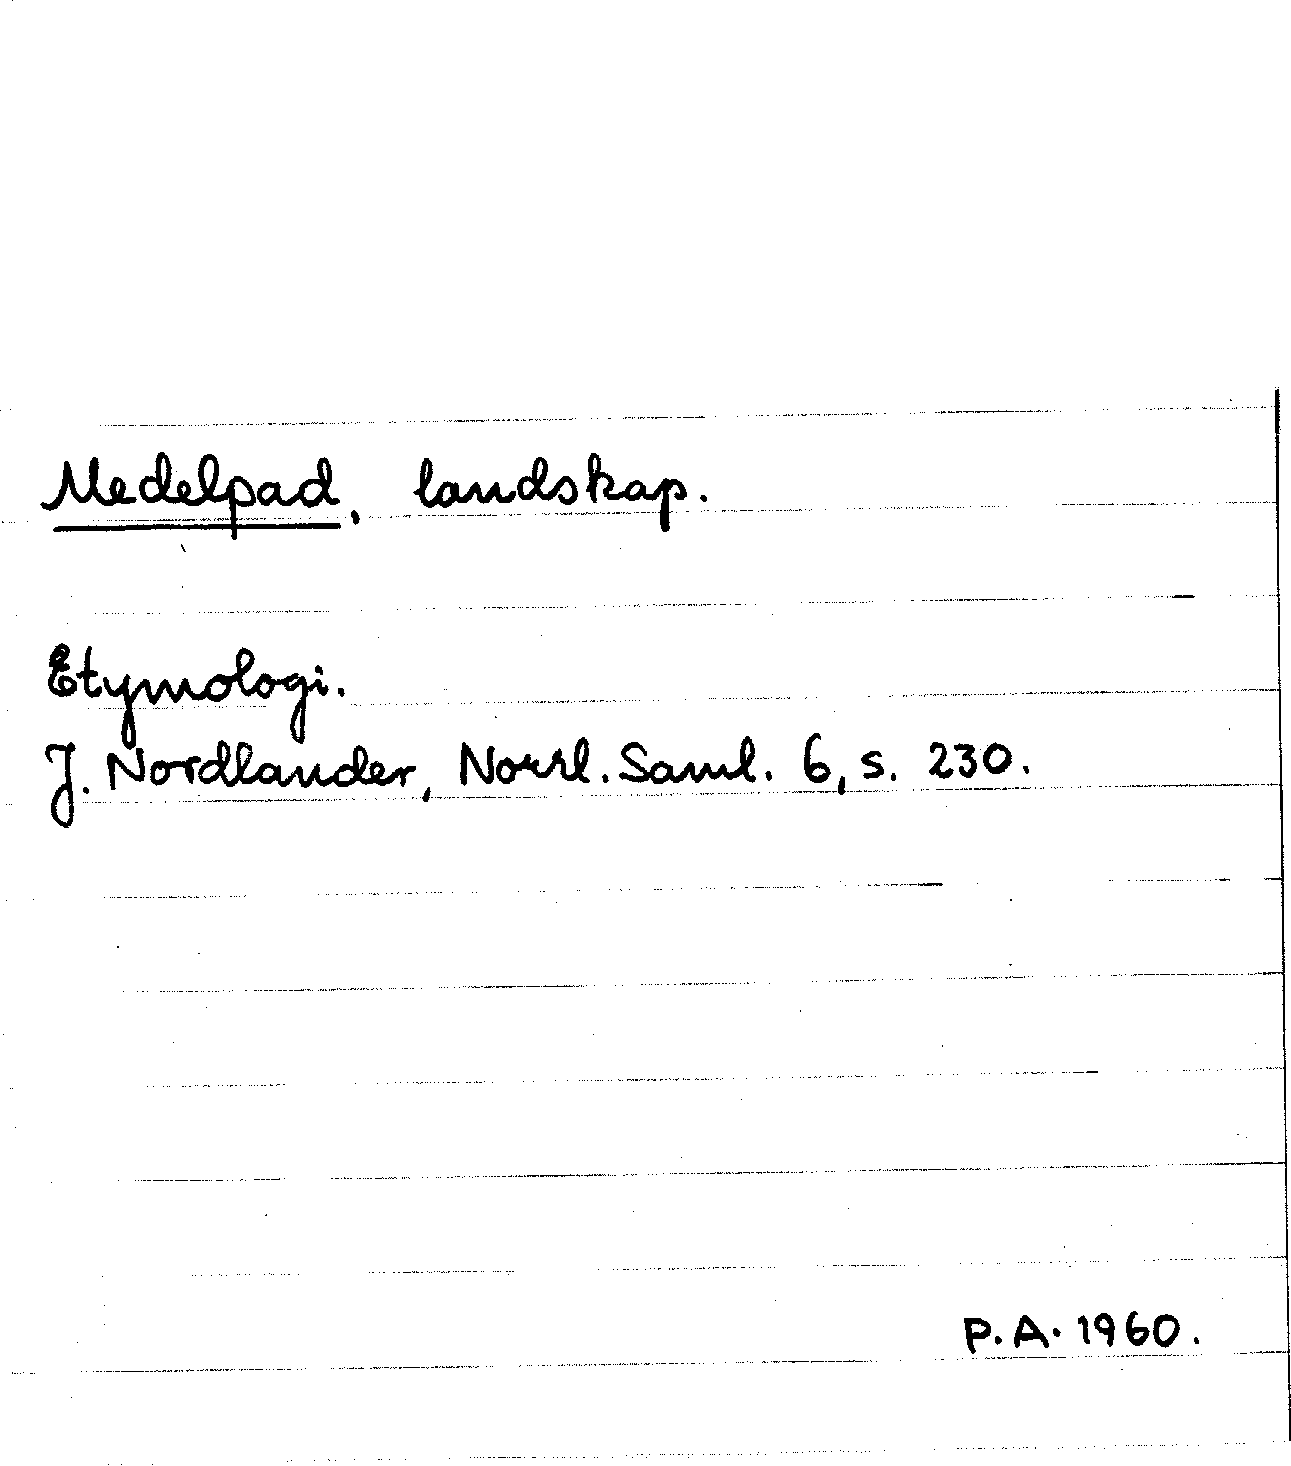 Medelpad, landskap.
Etymologi.
J. Nordlander, Norrl. Saml. 6, s. 230.
P.A. 1960.